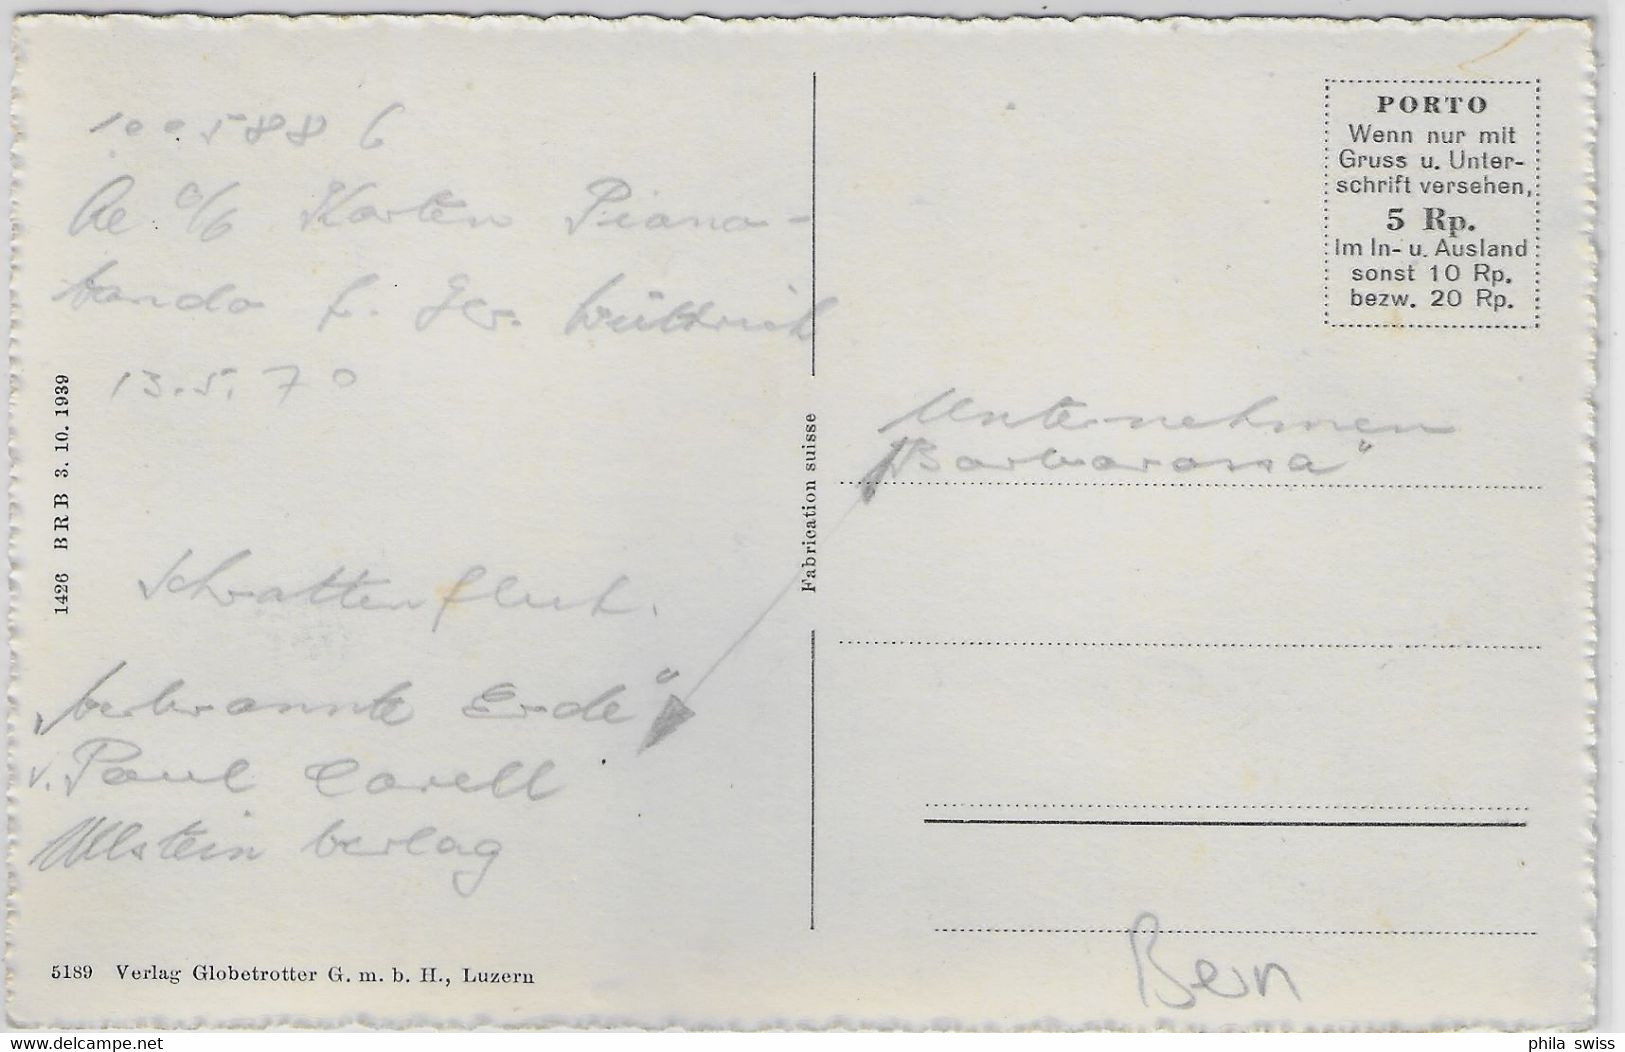 1005886
Karten Piano-
13.5.70
Schrattenfluh.
„verbrannte Erde"
v. Paul Carell
Ullstein verlag
1426 BRB 3. 10. 1939
5189 Verlag Globetrotter G. m. b. H., Luzern
Fabrication suisse
PORTO
Wenn nur mit
Gruss u. Unter-
schrift versehen,
5 Rp.
Im In- u. Ausland
sonst 10 Rp.
bezw. 20 Rp.
Unternehmen
„Barbarossa"
Bern
delcampe.net
phila swiss